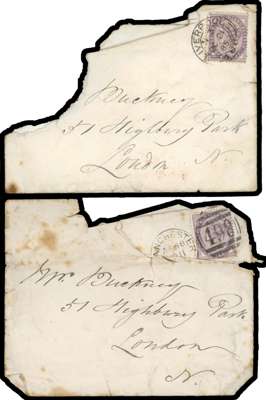 LIVERPOOL
Buckney
51 Highbury Park
London N.
MANCHESTER
498
Mr. Buckney
51 Highbury Park
London
N.